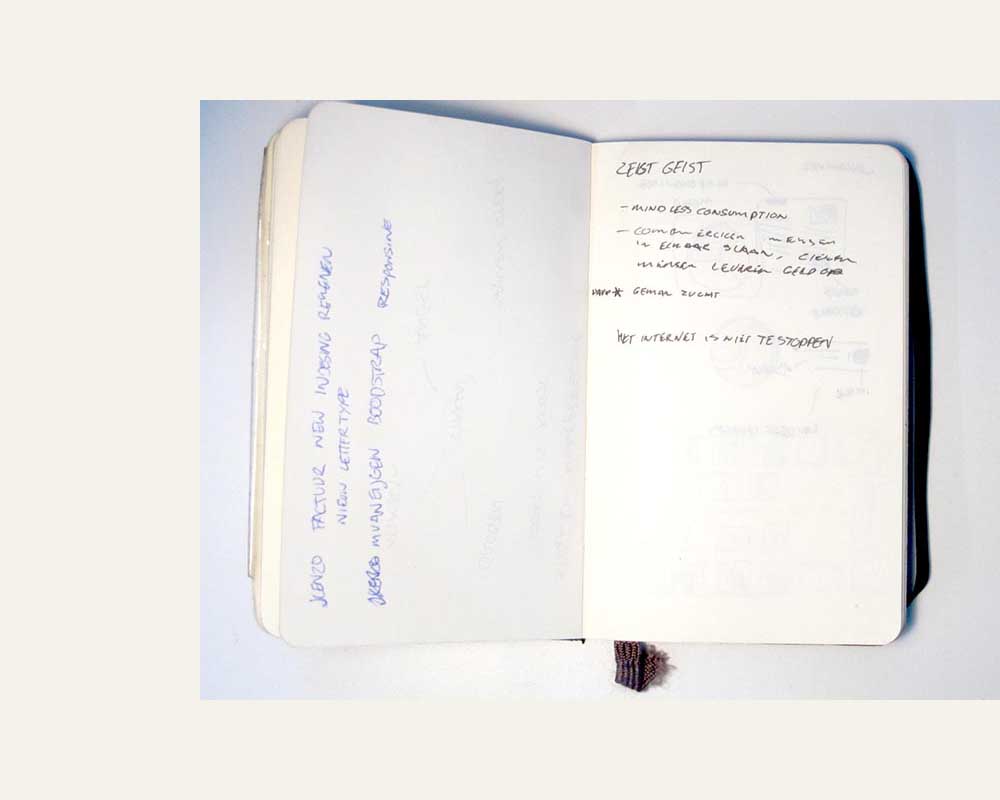 KENZO FACTUUR NEW INDESING REKENEN
NIEUW LETTERTYPE
MVANEIJGEN BOODSTRAP RESPONSINE
ZEIGT GEIST
- MINDLESS CONSUMPTION
- MENSEN
IN ELKAAR SLAAN,
MENSEN LEVEREN GELD OP
* GEMAK ZUCHT
HET INTERNET IS NIET TE STOPPEN